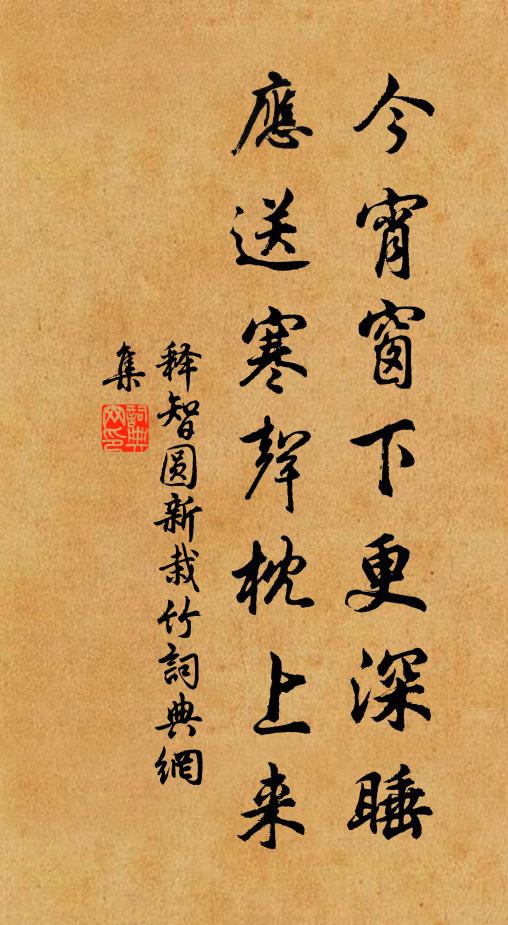 今宵窗下更深睡
應送寒聲枕上来
释智圆新栽竹詞典網
集
詞典
网印